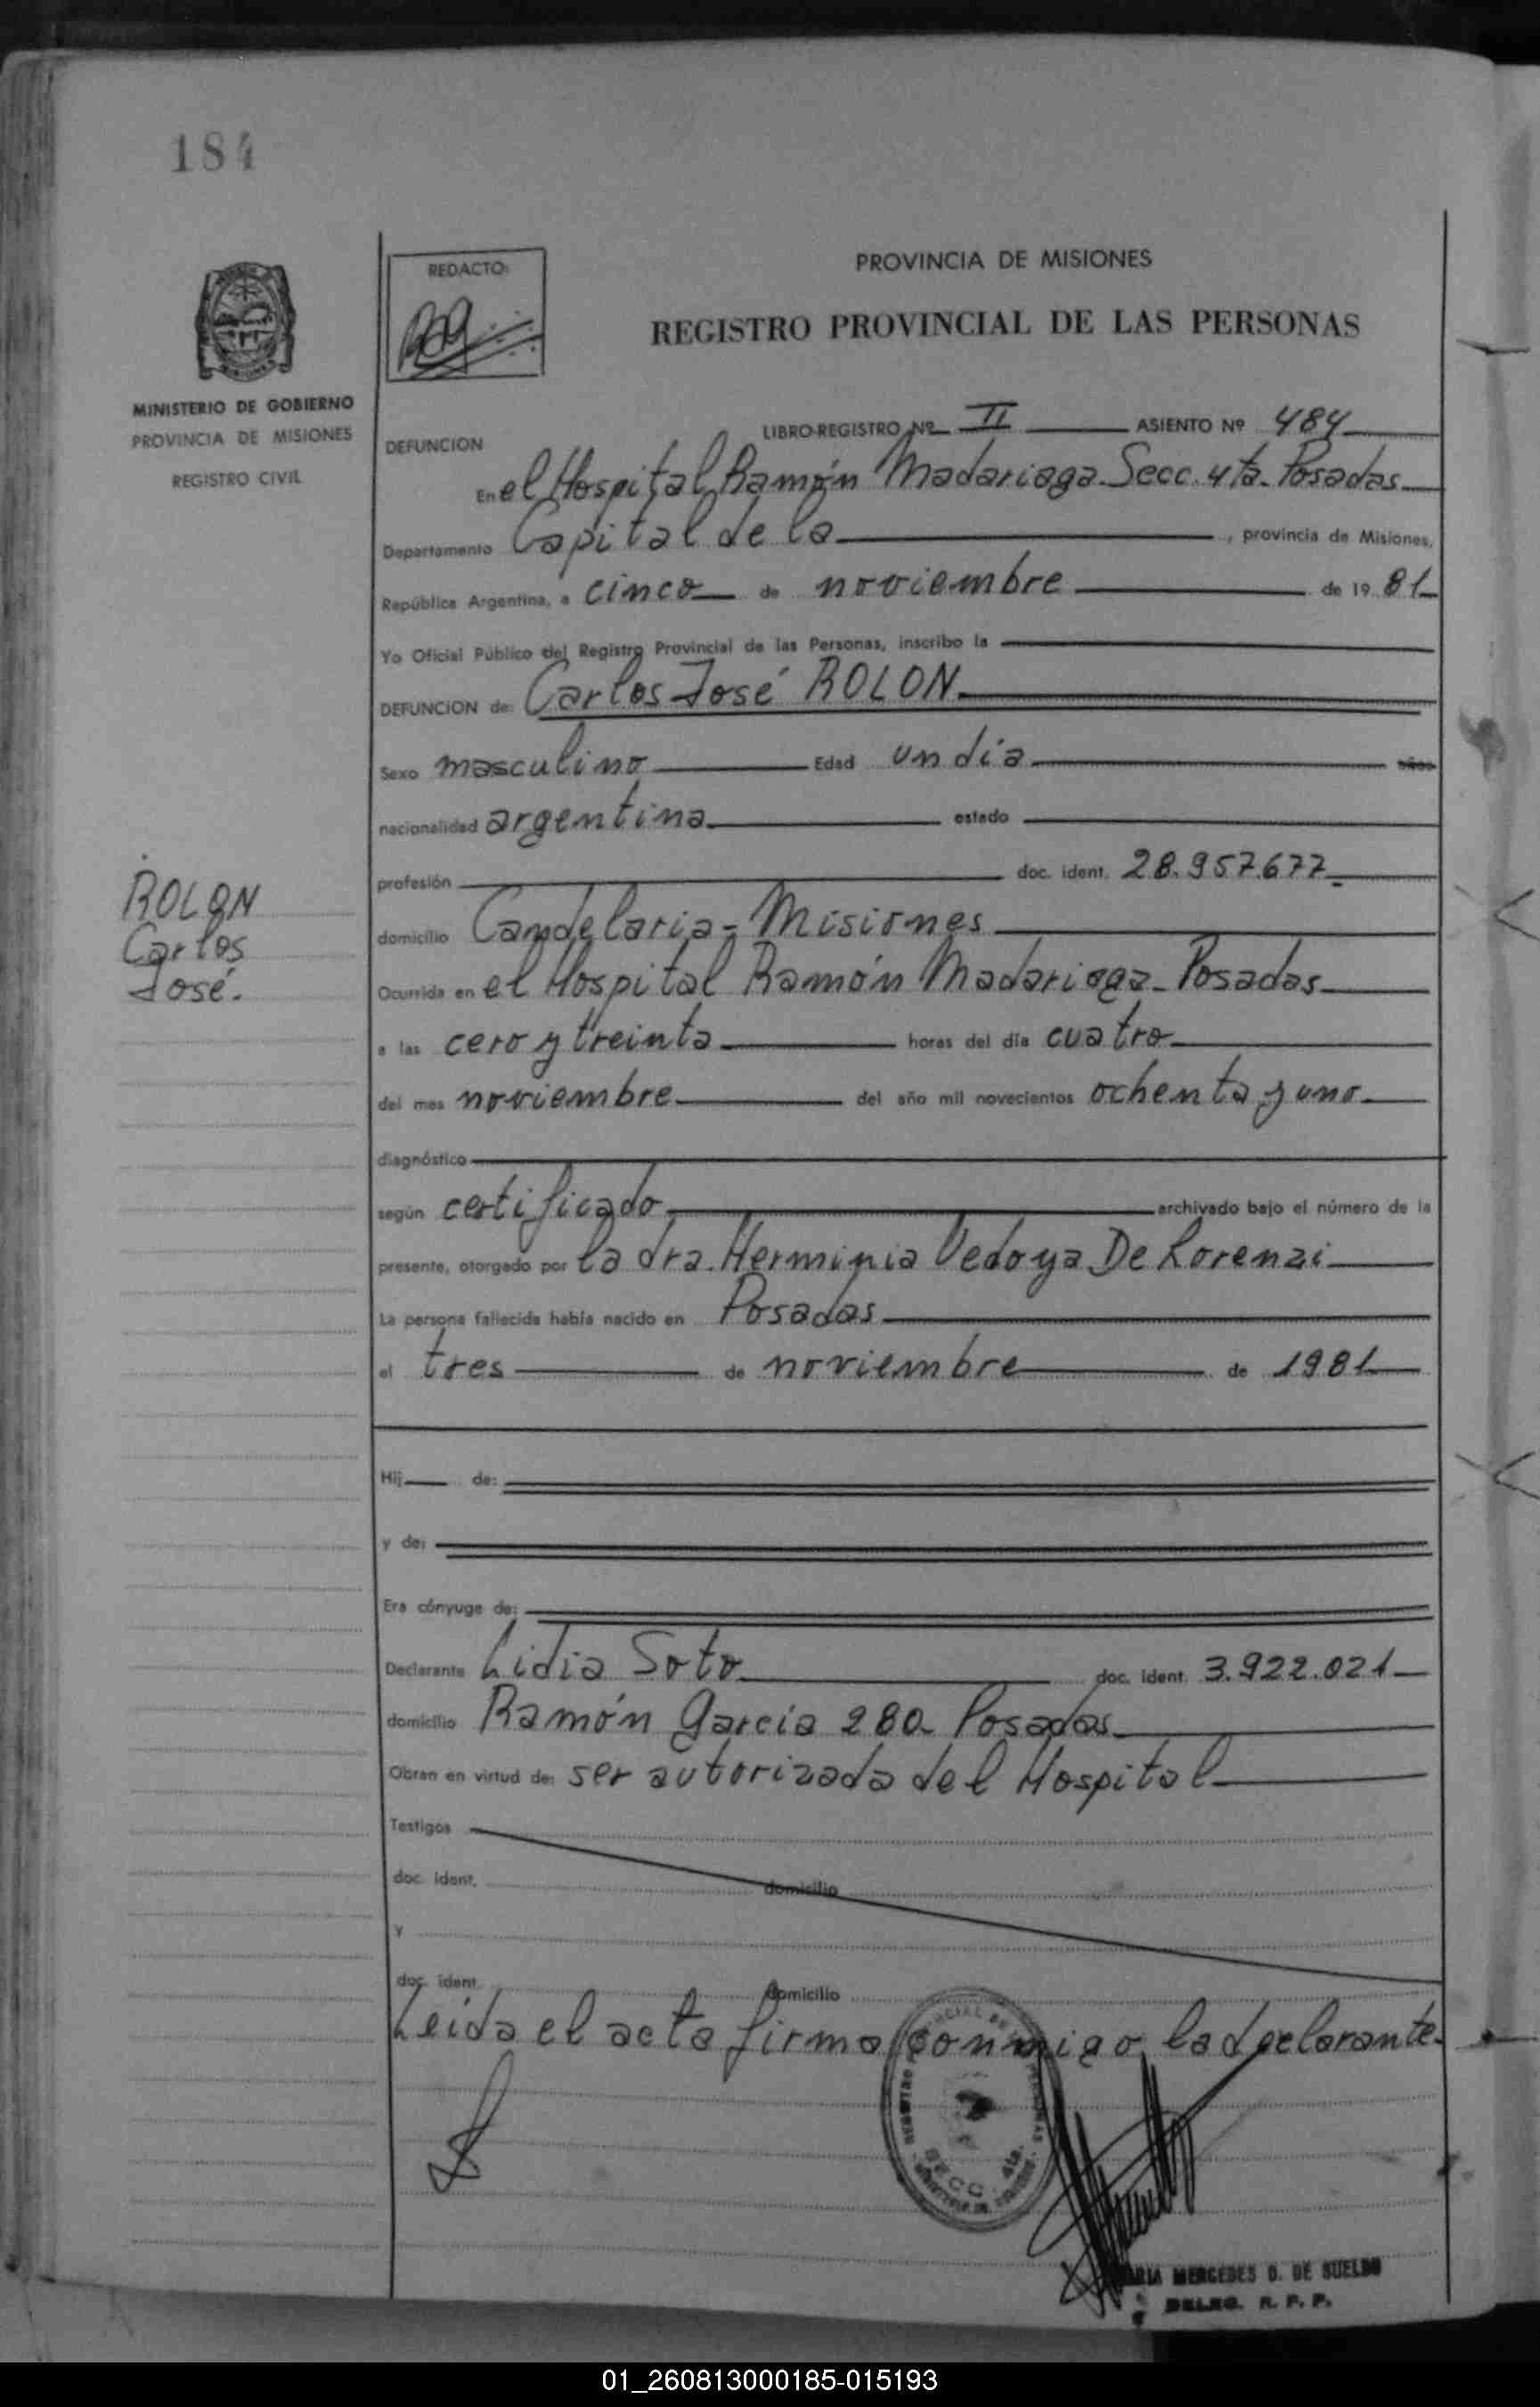 184
REDACTO:
PROVINCIA DE MISIONES
REGISTRO PROVINCIAL DE LAS PERSONAS
MINISTERIO DE GOBIERNO
PROVINCIA DE MISIONES
REGISTRO CIVIL
LIBRO-REGISTRO Nº II ASIENTO Nº 484
DEFUNCION
En el Hospital Ramón Madariaga. Secc. 4ta. Posadas
Departamento Capital de la, provincia de Misiones,
República Argentina, a cinco de noviembre de 1981
Yo Oficial Público del Registro Provincial de las Personas, inscribo la
DEFUNCION de: Carlos José ROLON
Sexo masculino Edad un día años
nacionalidad argentina estado
profesión doc. ident. 28.957.677
ROLON
Carlos
José.
domicilio Candelaria - Misiones
Ocurrida en el Hospital Ramón Madariaga - Posadas
a las cero y treinta horas del día cuatro
del mes noviembre del año mil novecientos ochenta y uno
diagnóstico
según certificado archivado bajo el número de la
presente, otorgado por la dra. Herminia Vedoya De Lorenzi
La persona fallecida había nacido en Posadas
el tres de noviembre de 1981
Hij de:
y de:
Era cónyuge de:
Declarante Lidia Soto doc. ident. 3.922.021
domicilio Ramón Garcia 280 - Posadas
Obran en virtud de: ser autorizada del Hospital
Testigos
doc. ident. domicilio
y
doc. ident. domicilio
Leida el acta firma conmigo la declarante.
SECC. 4ta.
MERCEDES D. DE SUELDO
DELEG. R. P. P.
01_260813000185-015193